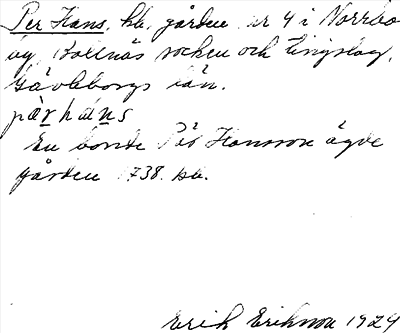 Per Hans, hb. gården nr 4 i Norrbo
by, Bollnäs socken och tingslag,
Gävleborgs län.
pär hans
En bonde Per Hansson ägde
gården 1738. hb.
Erik Erikson 1924